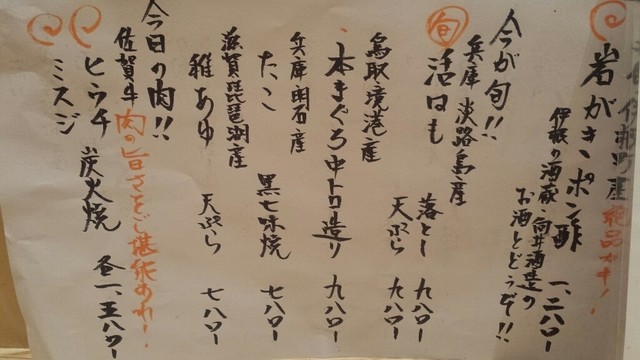 伊根町産 絶品カキ!
岩がき ポン酢 一、二八〇ー
伊根の酒蔵・向井酒造の
お酒とどうぞ!!
今が旬!!
兵庫 淡路島産
旬 活はも 落とし 九八〇ー
天ぷら 九八〇ー
鳥取境港産
本まぐろ中トロ造り 九八〇ー
兵庫明石産
たこ 黒七味焼 七八〇ー
滋賀琵琶湖産
稚あゆ 天ぷら 七八〇ー
今日の肉!!
佐賀牛 肉の旨さをご堪能あれ!
ヒウチ 炭火焼 各一、五八〇ー
ミスジ